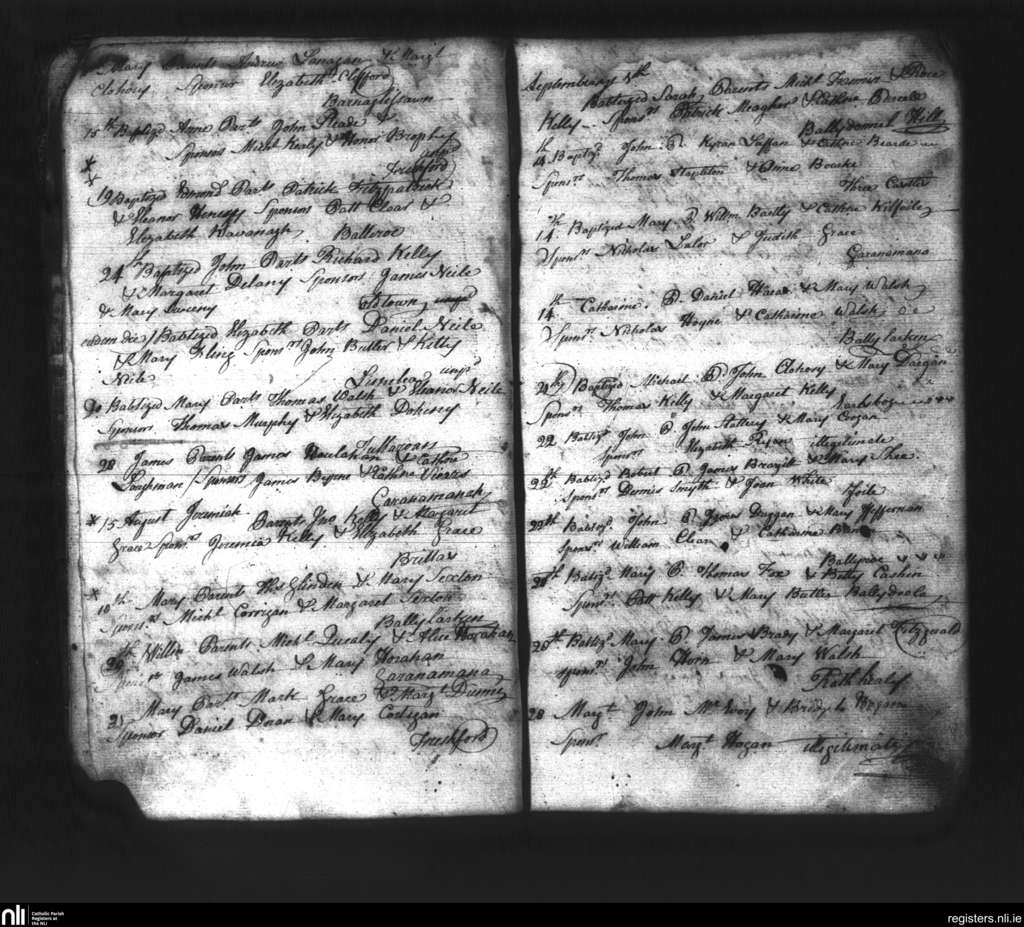 Mary Parents Andrew Lanagan & Margt
Clohosy Sponsor Elizabeth Clifford
Barnaglissawn
15th Baptized Anne Parts John Pheade &
Sponsors Michl Kealy & Honor Brophy
Freshford
19 Baptized Edmond Parts Patrick Fitzpatrick
& Eleanor Henessy Sponsors Patt Clear &
Elizabeth Kavanagh Balleroe
24 Baptized John Parts Richard Kelly
& Margaret Delany Sponsors James Neile
& Mary Sweeny Oldtown
eadem die / Baptized Elizabeth Parts Daniel Neile
& Mary Sponrs John Butler & Kelly
Neile
30 Babtized Mary Parts Thomas Walsh & Eleanor Neile
Sponsors Thomas Murphy & Elizabeth Doheny
Tullaroan
28 James Parents James Houlahan & Cathne
Loughman / Sponsors James Byrne & Cathne
Garanamanah
15 August Jeremiah Parents Jno Kelly & Margaret
Grace Sponrs Jeremia Kelly & Elizabeth Grace
Brittas
10th Mary Parents Thos & Mary Sexton
Sponsrs Michl Corrigan & Margaret Sexton
Ballylarkeen
20th Willm Parents Michl Dulany & Alice Horahan
Sponsrs James Walsh & Mary Horahan
Garanamana
21 Mary Parts Mark Grace & Margt Dunne
Sponsor Daniel Doran & Mary Costigan
Freshford
September 4th
Babtized Sarah, Parents Michl &
Kelly Sponrs Patrick Meagher & Cathne Purcell
Ballydonnel Hill
4th Baptizd John P. Kyran Laffan & Cathne Bearde
Sponrs Thomas Stapleton & Anne Bourke
Three Castles
14th Baptized Mary P. Willm Bailly & Cathne Kilfoile
Sponrs Nicholas Lalor & Judith Grace
Garanamana
14th Catharine P. Daniel & Mary Walsh
Sponrs Nicholas Hoyne & Catharine Walsh
Ballylarkeen
21th Baptizd Michael P. John Clohosy & Mary Dargan
Sponrs Thomas Kelly & Margaret Kelly
22 Babtizd John P. John Slattery & Mary Cogan
Sponrs Elizabeth Ryan illegitimate
22th Babtizd Robert P. James & Mary Shee
Sponrs Dennis Smyth & Joan White
Foile
22th Babtizd John P. James Duggan & Mary Heffernan
Sponrs William Clear & Catharine
Ballyroe
25th Babtizd Mary P. Thomas Fox & Betty Cashin
Sponrs Patt Kelly & Mary Butler Ballydoole
26th Babtizd Mary P. James Brady & Margaret Fitzgerald
Sponrs John Horn & Mary Walsh
Rathhealy
28 Margt John McEvoy & Bridgt
Sponr Margt Hogan illegitimate
nli
Catholic Parish
Registers at
the NLI
registers.nli.ie